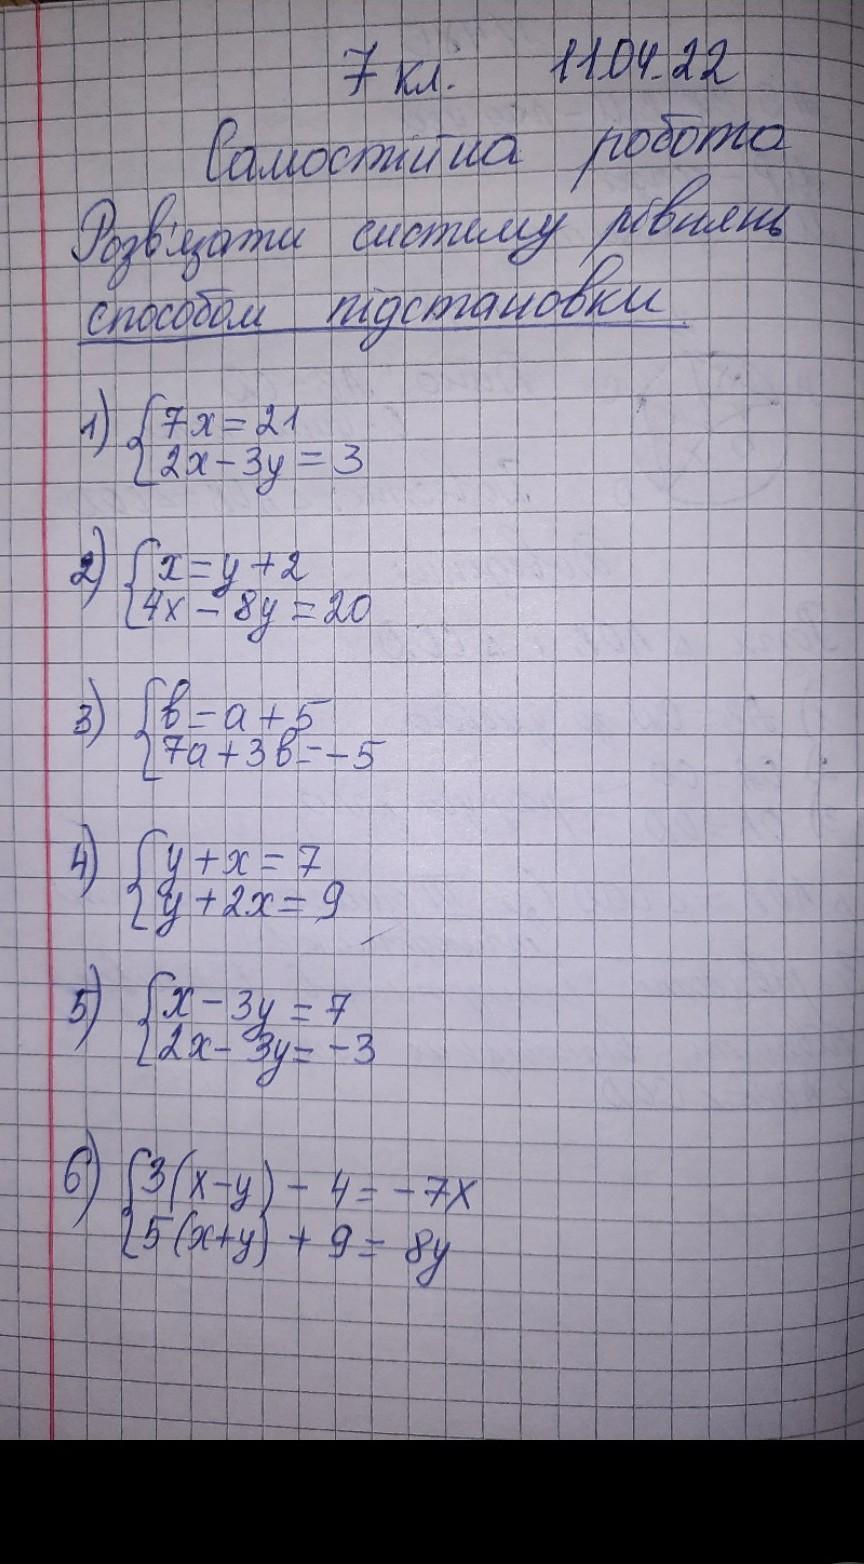 7 кл. 11.04.22
Самостійна робота
Розв'язати систему рівнянь
способом підстановки
1) { 7x = 21
2x - 3y = 3
2) { x = y + 2
4x - 8y = 20
3) { b = a + 5
7a + 3b = -5
4) { y + x = 7
y + 2x = 9
5) { x - 3y = 7
2x - 3y = -3
6) { 3(x-y) - 4 = -7x
5(x+y) + 9 = 8y